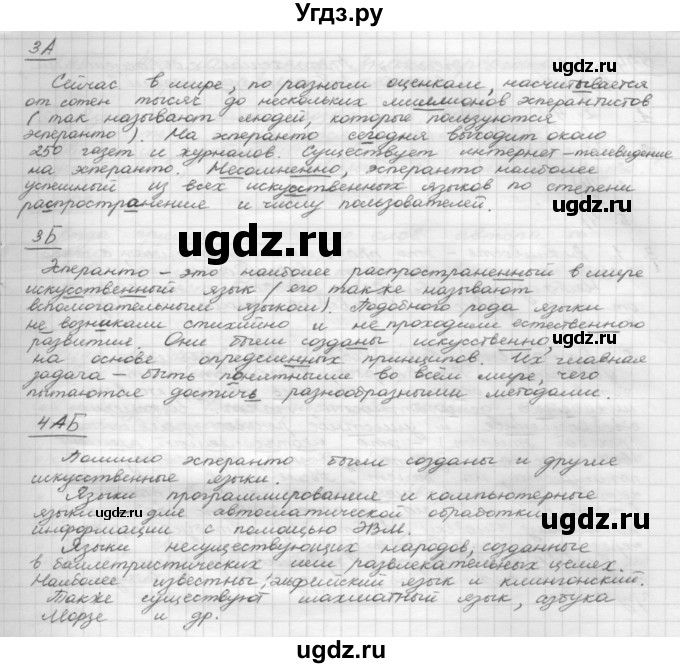 Угдз.ру
3А
Сейчас в мире, по разным оценкам, насчитывается
от сотен тысяч до нескольких миллионов эсперантистов
(так называют людей, которые пользуются
эсперанто). На эсперанто сегодня выходит около
250 газет и журналов. Существует интернет-телевидение
на эсперанто. Несомненно, эсперанто наиболее
успешный из всех искусственных языков по степени
распространения и числу пользователей.
ugdz.ru
3Б
ugdz.ru
Эсперанто - это наиболее распространенный в мире
искусственный язык (его также называют
вспомогательным языком). Подобного рода языки
не возникали стихийно и не проходили естественного
развития. Они были созданы искусственно,
на основе определенных принципов. Их главная
задача - быть понятными во всём мире, чего
пытаются достичь разнообразными методами.
ugdz.ru
ugdz.ru
4АБ
ugdz.ru
Помимо эсперанто были созданы и другие
искуственные языки.
Языки программирования и компьютерные
языки для автоматической обработки
информации с помощью ЭВМ.
ugdz.ru
ugdz.ru
Языки несуществующих народов, созданные
в беллетристических или развлекательных целях.
Наиболее известны: эльфийский язык и клингонский.
Также существуют шахматный язык, азбука
Морзе и др.
ugdz.ru
ugdz.ru